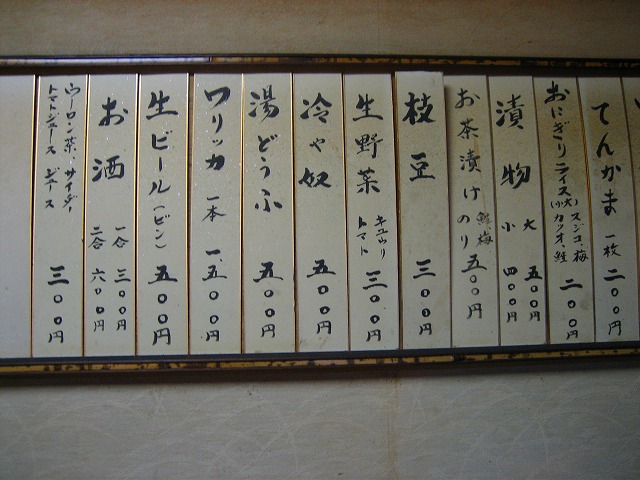 てんかま 一枚 二〇〇円
おにぎり ライス(小大) スジコ、梅
カツオ、鮭 二〇〇円
漬物 大 五〇〇円
小 四〇〇円
お茶漬け 鮭 梅
のり 五〇〇円
枝豆 三〇〇円
生野菜 キュウリ
トマト 三〇〇円
冷や奴 五〇〇円
湯どうふ 五〇〇円
ワリッカ 一本 一、五〇〇円
生ビール(ビン) 五〇〇円
お酒 一合 三〇〇円
二合 六〇〇円
ウーロン茶、サイダー
トマトジュース ジュース 三〇〇円